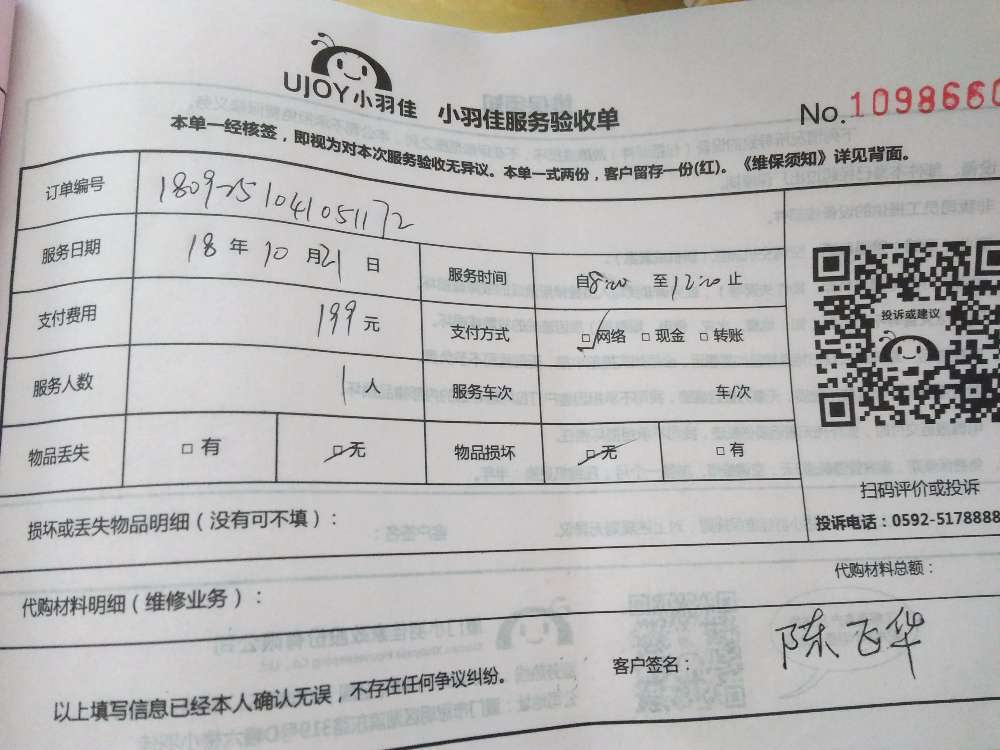 UJOY小羽佳 小羽佳服务验收单
No.1098660
本单一经核签，即视为对本次服务验收无异议。本单一式两份，客户留存一份(红)。《维保须知》详见背面。
订单编号 1809251041051172
服务日期 18年10月21日 服务时间 自8:00 至12:00止
支付费用 199元 支付方式 □网络 □现金 □转账
服务人数 1人 服务车次 车/次
物品丢失 □有 □无 物品损坏 □无 □有
投诉或建议
扫码评价或投诉
投诉电话：0592-5178888
损坏或丢失物品明细（没有可不填）：
代购材料明细（维修业务）：
代购材料总额：
以上填写信息已经本人确认无误，不存在任何争议纠纷。
客户签名： 陈飞华